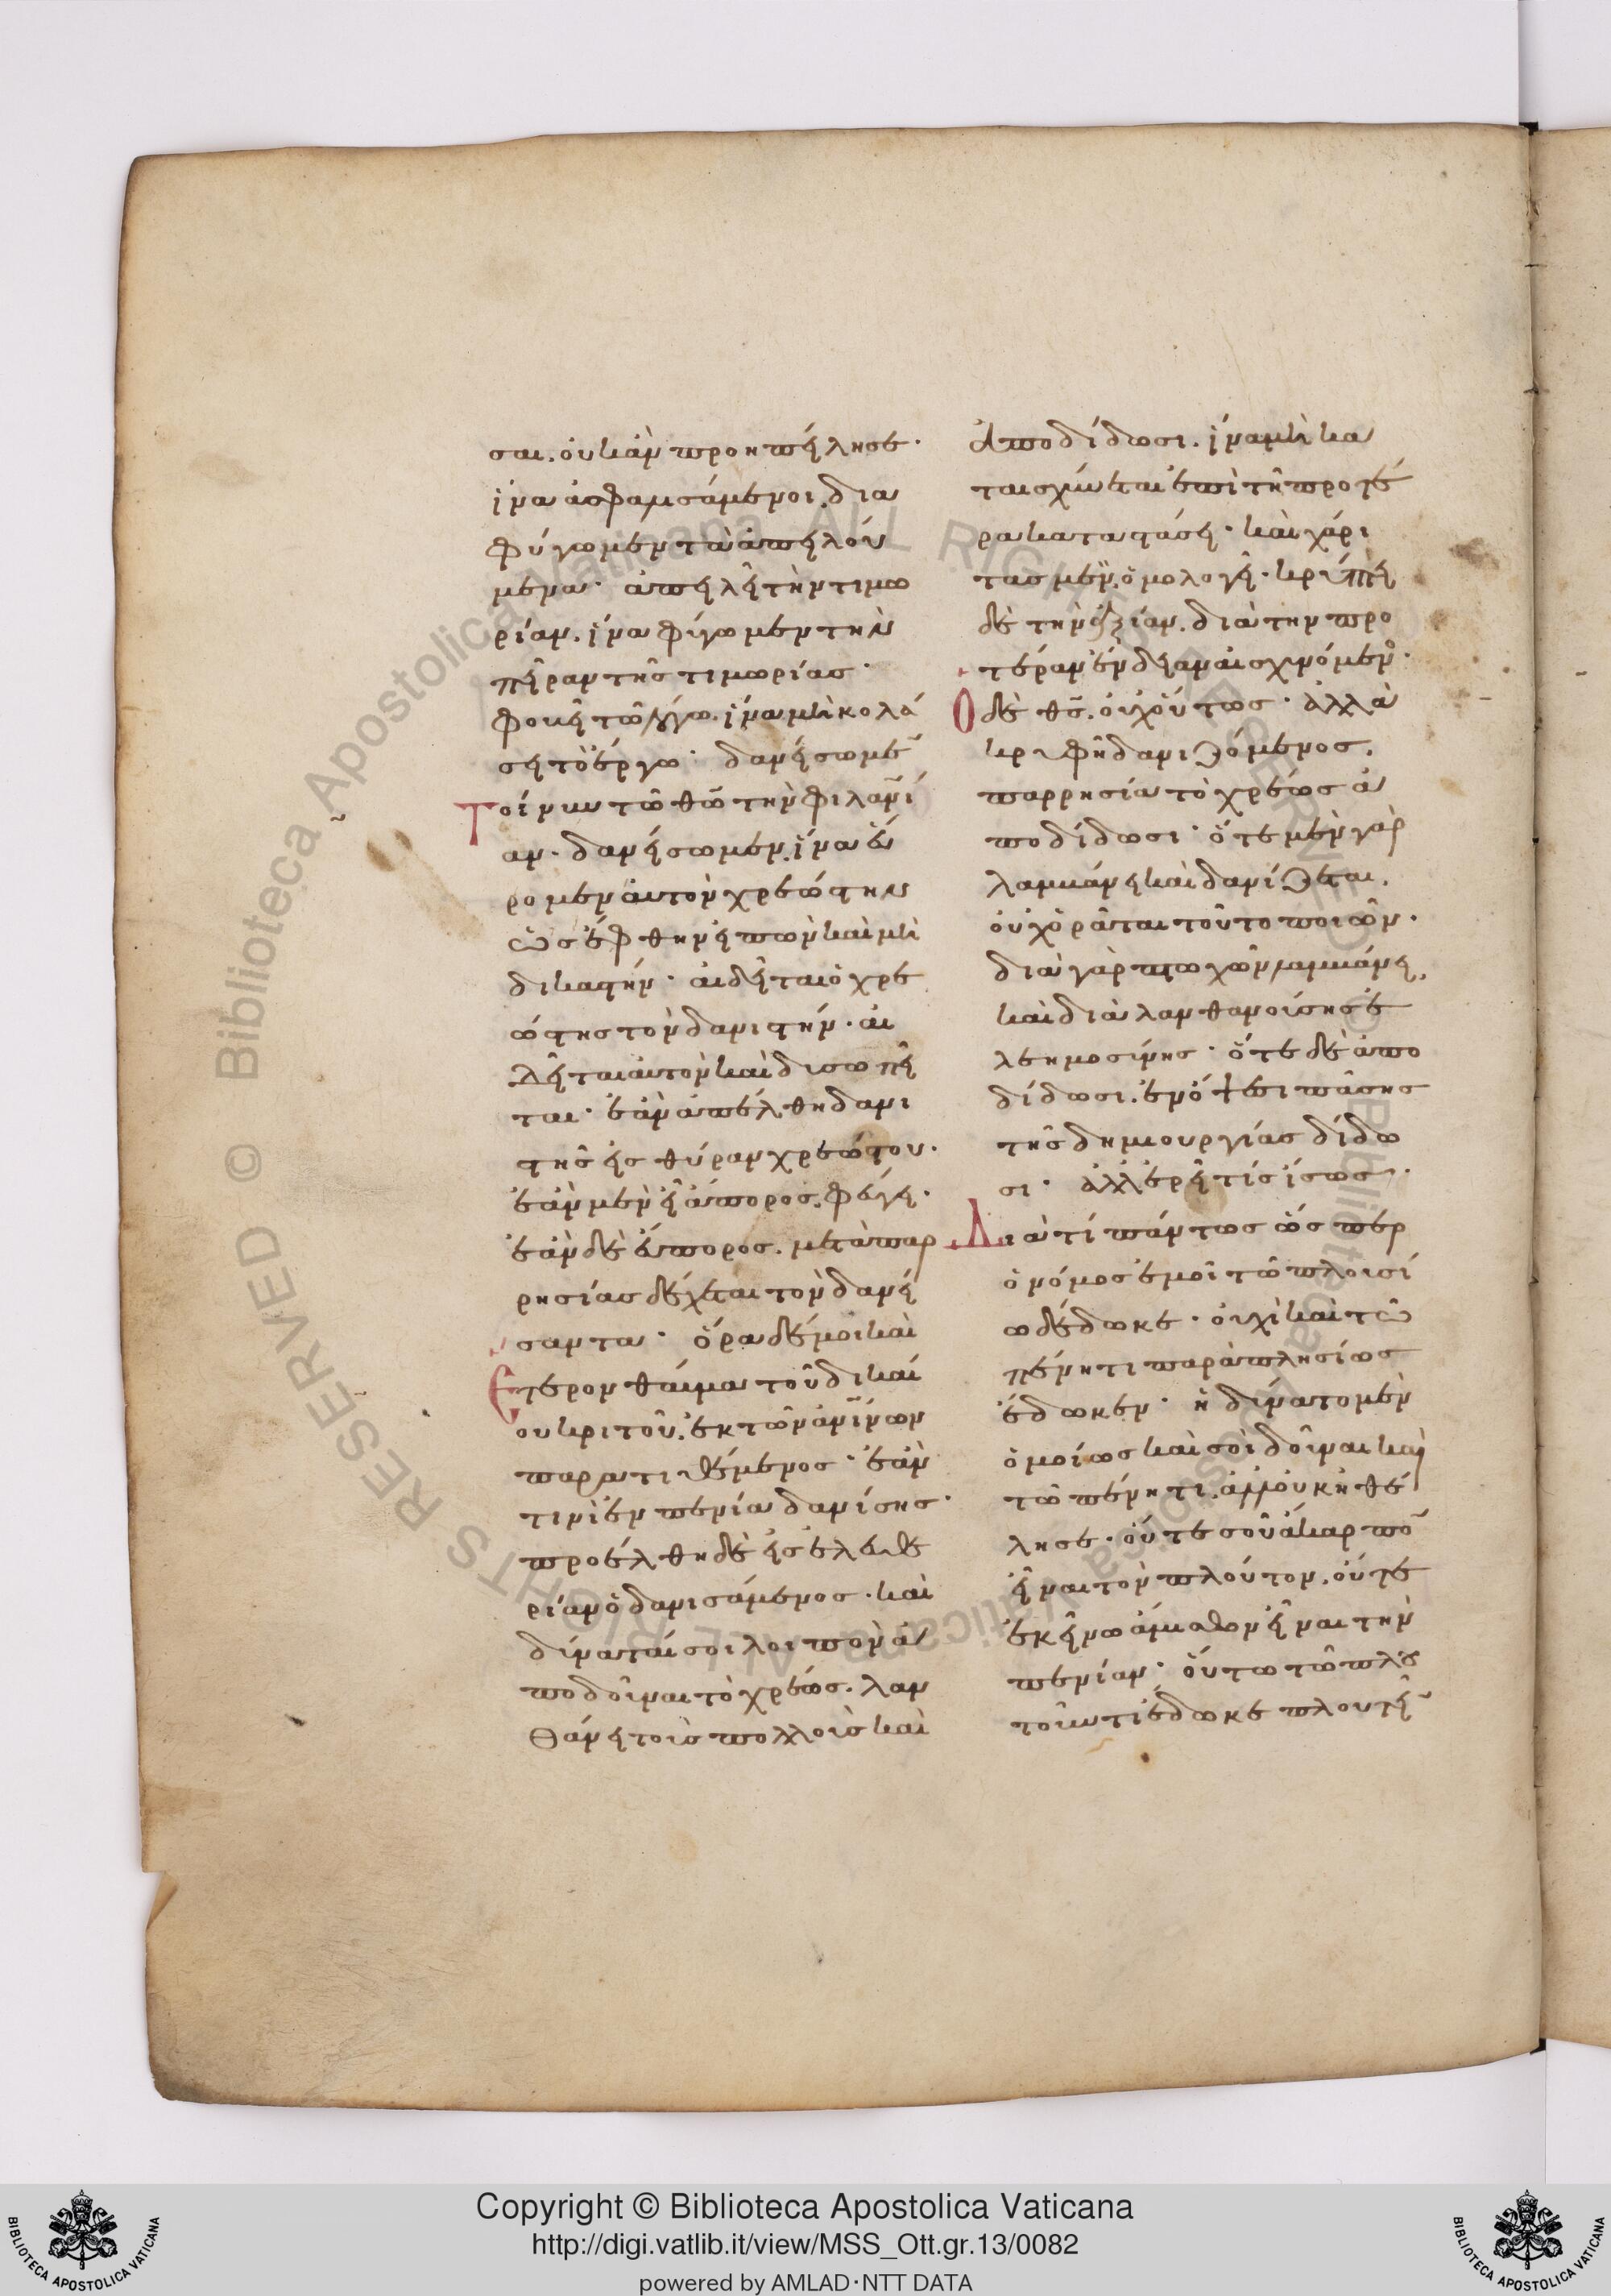 σαι. οὐκ ἂν προηπείλησε·
ἵνα ἀσφαλισάμενοι, δια
φύγωμεν τὰ ἀπειλού
μενα· ἀπειλεῖ τὴν τιμω
ρίαν. ἵνα φύγωμεν τὴν
πεῖραν τῆς τιμωρίας·
φοβεῖ τῶ λόγω. ἵνα μὴ κολά
ση τὸ ἔργω· δανείσωμε̄
τοίνυν τῶ θῶ τὴν φιλαν̄ί
αν· δανείσωμεν, ἵνα εὕ
ρομεν αὐτὸν χρεώστην
ὡς ἔφθην εἰπὼν καὶ μὴ
δικαστήν· αἰδεῖται ὁ χρε
ώστης τὸν δανιστήν· αἰ
δεῖται αὐτὸν καὶ δυσωπεῖ
ται· ἐὰν ἀπέλθη δανι
στῆς εἰς θύραν χρεώστου·
ἐὰν μὲν εἶ ἄπορος, φεύγει·
ἐὰν δὲ εὔπορος. μετὰ παρ
ρησίας δέχεται τὸν δανεί
σαντα· ὅρα δέ μοι καὶ
ἕτερον θαύμα τοῦ δικαί
ου κριτοῦ. ἐκ τῶν ἀν̄ίνων
παρατιθέμενος· ἐάν
τινι ἐν πενία δανίσης·
προέλθη δὲ εἰς ἐλευθε
ρίαν ὁ δανισάμενος· καὶ
δύναταί σοι λοιπὸν ἀ
ποδοῦναι τὸ χρέως. λαν
θάνει τοὺς πολλοὺς καὶ
ἀποδίδωσι. ἵνα μὴ κα
ταισχύνεται ἐπὶ τῆ προτέ
ρα καταστάσει· καὶ χάρι
τας μὲν ὁμολογεῖ· κρύπτει
δὲ τὴν ἀξίαν. διὰ τὴν προ
τέραν ἔνδειαν αἰσχυνόμεν̊·
ὁ δὲ θς̄. οὐχ οὕτως· ἀλλὰ
κρυφῆ δανιζόμενος.
παρρησία τὸ χρέως ἀ
ποδίδωσι· ὅτε μὲν γὰρ
λαμβάνει καὶ δανίζεται.
οὐχ ὁρᾶται τοῦτο ποιῶν·
διὰ γὰρ πτωχῶν λαμβάνει,
καὶ διὰ λανθανούσης ἐ
λεημοσύνης· ὅτε δὲ ἀπο
δίδωσι. ἐνόψει πάσης
τῆς δημιουργίας δίδω
σι· ἀλλ' ἐρεῖ τίς ἴσως·
διατί πάντως ὥσπερ
ὁ νόμος ἐμοὶ τῶ πλουσί
ω δέδωκε· οὐχὶ καὶ τῶ
πένητι παραπλησίως
ἔδωκεν· ἢ δύνατο μὲν
ὁμοίως καὶ σοὶ δοῦναι καὶ
τῶ πένητι. ἀλλ' οὐκ ἠθέ
λησε· οὔτε σοῦ ἄκαρπο̄
εἶναι τὸν πλούτον. οὔτε
ἐκείνω ἄμισθον εἶναι τὴν
πενίαν· οὕτω τῶ πλου
τοῦντι ἔδωκε πλουτεῖ̄